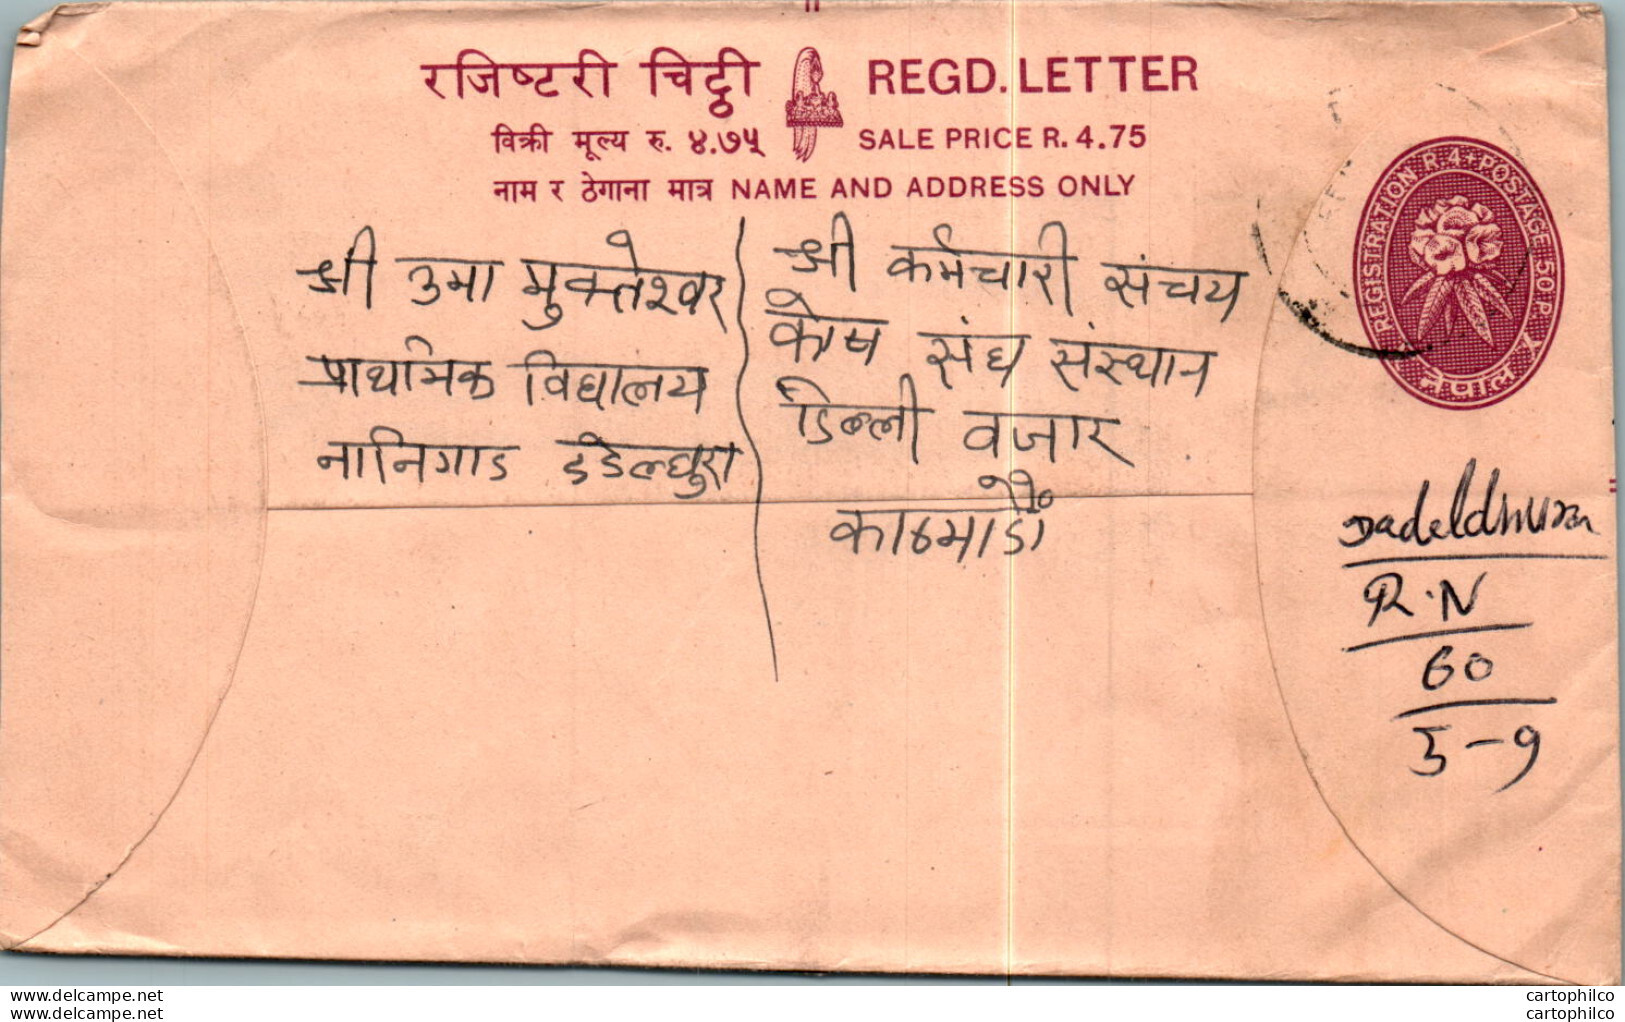 रजिष्टरी चिट्ठी REGD. LETTER
विक्री मूल्य रु. ४.७५ SALE PRICE R. 4.75
नाम र ठेगाना मात्र NAME AND ADDRESS ONLY
REGISTRATION R 4 + POSTAGE 50 P.
नेपाल
श्री उमा मुक्तेश्वर
प्राथमिक विद्यालय
नानिगाड डडेल्धुरा
श्री कर्मचारी संचय
कोष संघ संस्थान
डिल्ली वजार
काठमाडौं
Dadeldhura
R.N
60
5-9
delcampe.net
cartophilco
delcampe.net
cartophilco